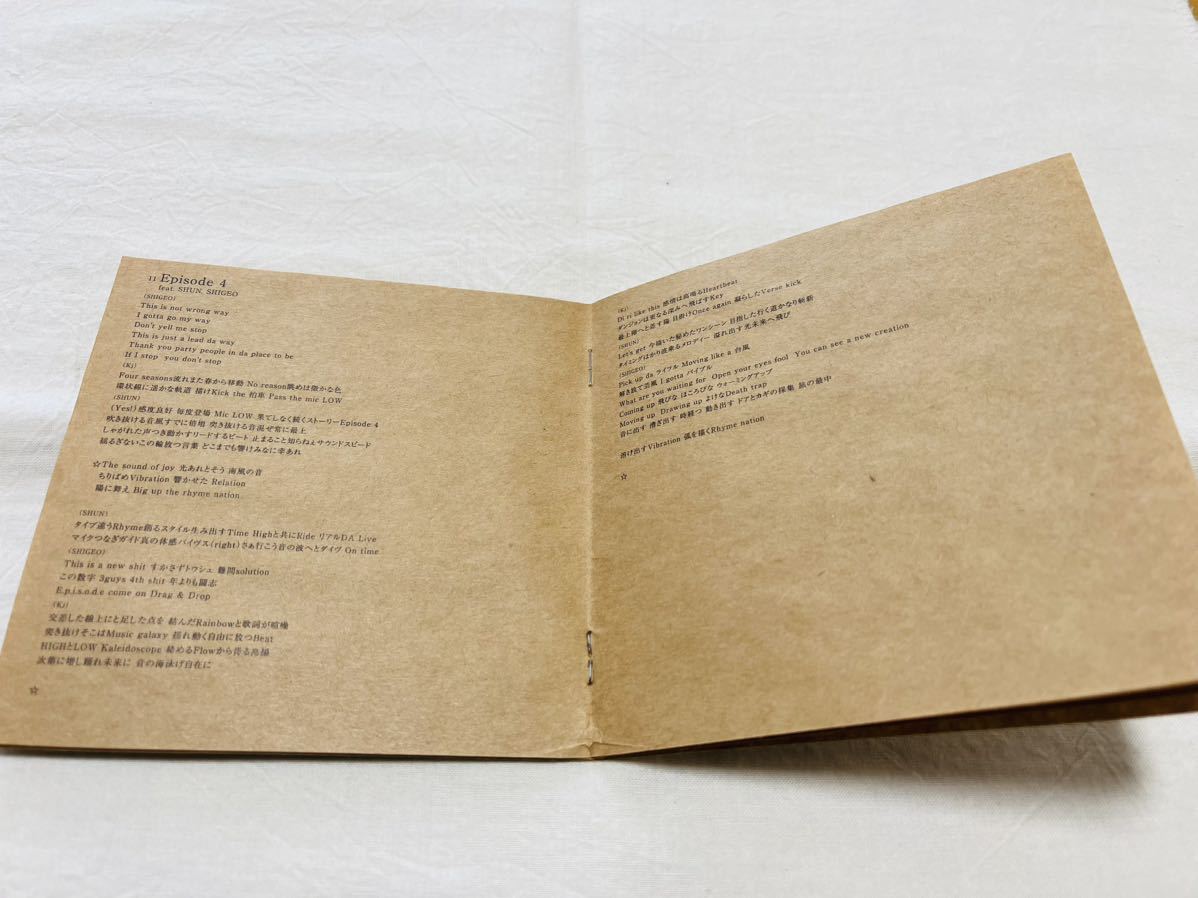 11 Episode 4
feat. SHUN, SHIGEO
(SHIGEO)
This is not wrong way
I gotta go my way
Don't yell me stop
This is just a lead da way
Thank you party people in da place to be
If I stop you don't stop
(Kj)
Four seasons流れまた春から移動 No reason眺めは微かな色
環状線に遥かな軌道 描けKick the 拍車 Pass the mic LOW
(SHUN)
(Yes!)感度良好 毎度登場 Mic LOW 果てしなく続くストーリーEpisode 4
吹き抜ける音風すでに倍増 突き抜ける音混ぜ常に最上
しゃがれた声つき動かすリードするビート 止まること知らねぇサウンドスピード
揺るぎないこの輪放つ言葉 どこまでも響けみなに幸あれ
☆The sound of joy 光あれとそう 南風の音
ちりばめVibration 響かせた Relation
陽に舞え Big up the rhyme nation
(SHUN)
タイプ違うRhyme創るスタイル生み出すTime Highと共にRide リアルDA Live
マイクつなぎガイド真の体感バイヴス(right)さぁ行こう音の波へとダイヴ On time
(SHIGEO)
This is a new shit すかさずトウシュ 難問solution
この数字 3guys 4th shit 年よりも闘志
E.p.i.s.o.d.e come on Drag & Drop
(Kj)
交差した線上にと足した点を 結んだRainbowと歌詞が喧噪
突き抜けそこはMusic galaxy 揺れ動く自由に放つBeat
HIGHとLOW Kaleidoscope 秘めるFlowから待る
次第に増し踊れ未来に 音の海泳げ自在に
☆
(Kj)
Di ri like this 感情は高鳴るHeartbeat
ダンジョンは更なる深みへ飛ばすKey
最上階へと差す陽 目掛けOnce again 凝らしたVerse kick
(SHUN)
Let's get 今描いた秘めたワンシーン 目指した行く道かなり斬新
タイミングばかり波乗るメロディー 溢れ出す光未来へ飛び
(SHIGEO)
Pick up da ライブル Moving like a 台風
解き放て芸風 I gotta バイブル
What are you waiting for Open your eyes fool You can see a new creation
Coming up 飛びな ほころびな ウォーミングアップ
Moving up Drawing up よけなDeath trap
音に出す 漕ぎ出す 時経つ 動き出す ドアとカギの採集 旅の最中
溶け出すVibration 弧を描くRhyme nation
☆